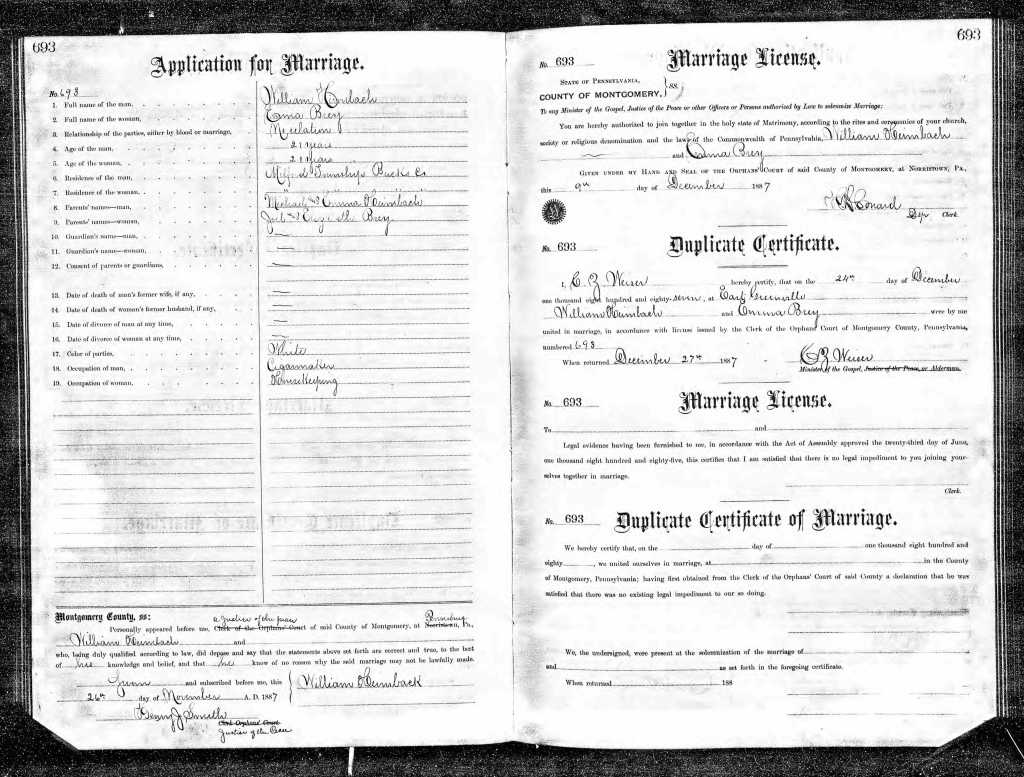 693
Application for Marriage.
No. 693
1. Full name of the man, William Heimbach
2. Full name of the woman, Emma Brey
3. Relationship of the parties, either by blood or marriage, No relation
4. Age of the man, 21 Years
5. Age of the woman, 21 Years
6. Residence of the man, Milford Township Bucks Co
7. Residence of the woman, " " "
8. Parents' names—man, and Emma Heimbach
9. Parents' names—woman, and Brey
10. Guardian's name—man, —
11. Guardian's name—woman, —
12. Consent of parents or guardians, —
13. Date of death of man's former wife, if any, —
14. Date of death of woman's former husband, if any, —
15. Date of divorce of man at any time, —
16. Date of divorce of woman at any time, —
17. Color of parties, White
18. Occupation of man, Cigarmaker
19. Occupation of woman, Housekeeping
Montgomery County, ss: a Justice of the peace
Personally appeared before me, Clerk of the Orphans' Court of said County of Montgomery, at Pennsburg Norristown, Pa.,
William Heimbach and
who, being duly qualified according to law, did depose and say that the statements above set forth are correct and true, to the best
of his knowledge and belief, and that he know of no reason why the said marriage may not be lawfully made.
Sworn and subscribed before me, this
26th day of November A. D. 1887
William Heimback
Henry J. Smith
Clerk Orphans' Court
Justice of the Peace
693
No. 693 Marriage License.
State of Pennsylvania,
County of Montgomery, } 188
To any Minister of the Gospel, Justice of the Peace or other Officers or Persons authorized by Law to solemnize Marriage:
You are hereby authorized to join together in the holy state of Matrimony, according to the rites and ceremonies of your church,
society or religious denomination and the laws of the Commonwealth of Pennsylvania, William Heimbach
and Emma Brey
Given under my Hand and Seal of the Orphans' Court of said County of Montgomery, at Norristown, Pa.,
this 9th day of December 1887
Conard
Dep Clerk.
No. 693 Duplicate Certificate.
I, C. Z. Weiser hereby certify, that on the 24th day of December
one thousand eight hundred and eighty-seven, at East Greenville
William Heimbach and Emma Brey were by me
united in marriage, in accordance with license issued by the Clerk of the Orphans' Court of Montgomery County, Pennsylvania,
numbered 693
When returned December 27th 1887 C Z Weiser
Minister of the Gospel, Justice of the Peace, or Alderman.
No. 693 Marriage License.
To and
Legal evidence having been furnished to me, in accordance with the Act of Assembly approved the twenty-third day of June,
one thousand eight hundred and eighty-five, this certifies that I am satisfied that there is no legal impediment to you joining your-
selves together in marriage.
Clerk.
No. 693 Duplicate Certificate of Marriage.
We hereby certify that, on the day of one thousand eight hundred and
eighty , we united ourselves in marriage, at in the County
of Montgomery, Pennsylvania; having first obtained from the Clerk of the Orphans' Court of said County a declaration that he was
satisfied that there was no existing legal impediment to our so doing.
We, the undersigned, were present at the solemnization of the marriage of
and as set forth in the foregoing certificate.
When returned 188